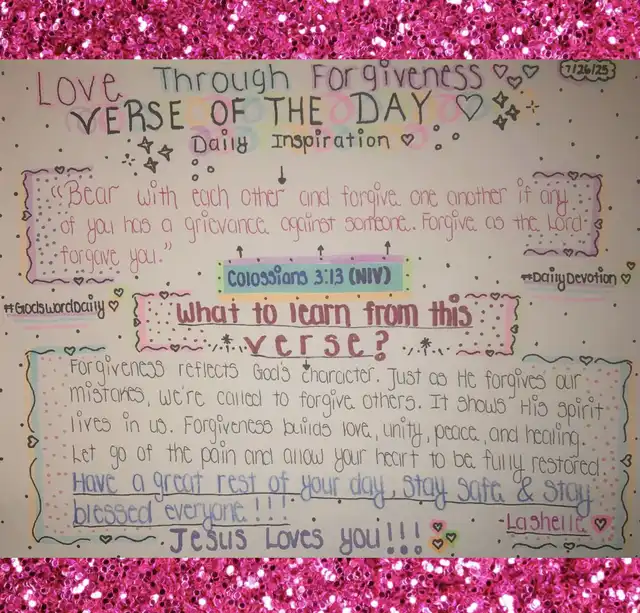 Love Through Forgiveness
7/26/25
VERSE OF THE DAY
Daily Inspiration
"Bear with each other and forgive one another if any
of you has a grievance against someone. Forgive as the Lord
forgave you."
Colossians 3:13 (NIV)
#DailyDevotion
#GodswordDaily
What to learn from this
verse?
Forgiveness reflects God's character. Just as He forgives our
mistakes, we're called to forgive others. It shows His spirit
lives in us. Forgiveness builds love, unity, peace, and healing.
Let go of the pain and allow your heart to be fully restored.
Have a great rest of your day, stay safe & stay
blessed everyone!!!
-Lashelle
Jesus Loves you!!!